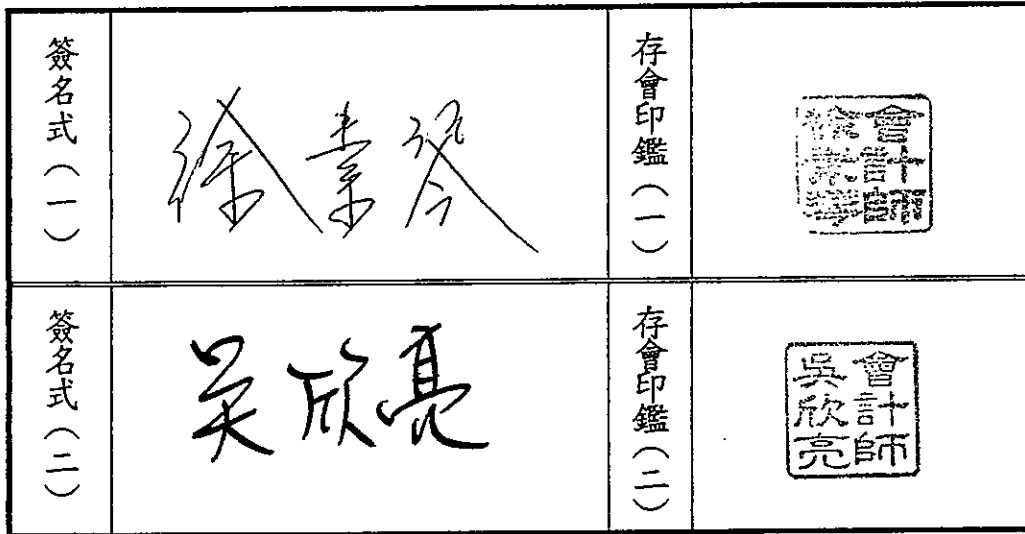 簽名式(一)
徐素琴
存會印鑑(一)
會計師
徐素琴
簽名式(二)
吳欣亮
存會印鑑(二)
會計師
吳欣亮